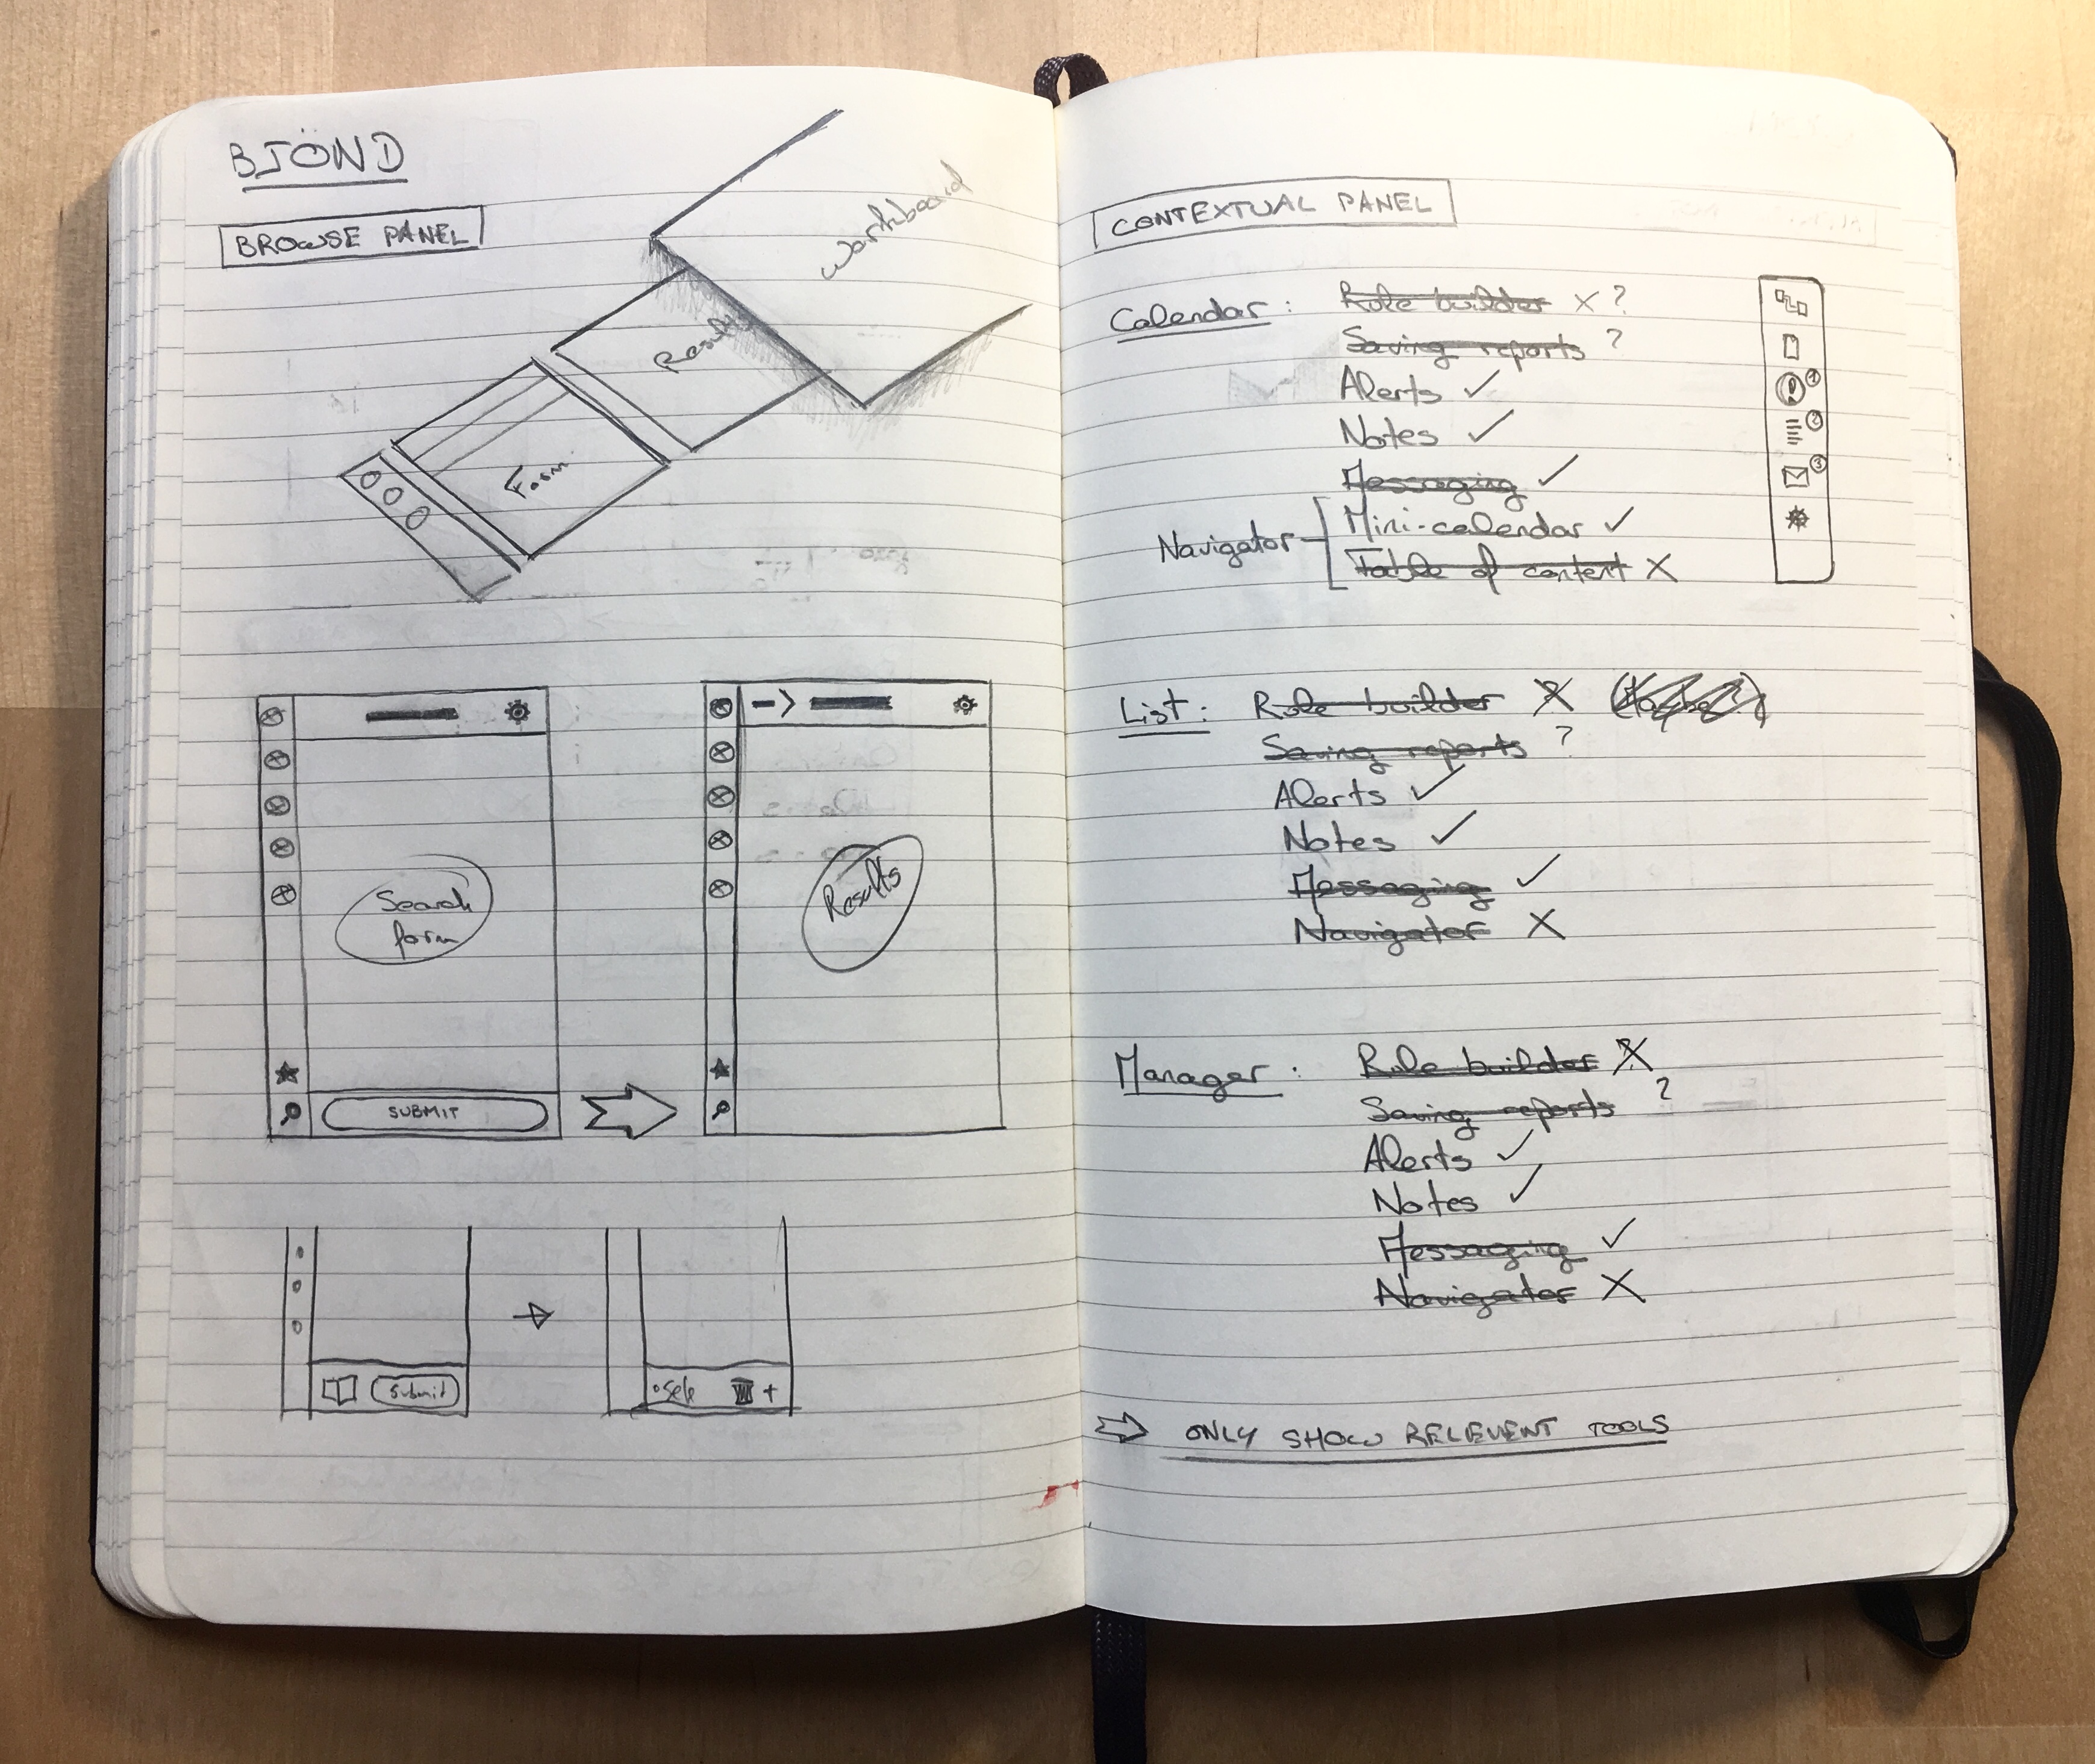 BJÖND
BROWSE PANEL
Workboard
Results
Form
Search
form
Results
SUBMIT
Submit
Sele
CONTEXTUAL PANEL
Calendar : Rule builder X ?
Saving reports ?
Alerts ✓
Notes ✓
Messaging ✓
Navigator Mini-calendar ✓
Table of content X
1
2
3
List : Rule builder X
Saving reports ?
Alerts ✓
Notes ✓
Messaging ✓
Navigator X
Manager : Rule builder X
Saving reports ?
Alerts ✓
Notes ✓
Messaging ✓
Navigator X
⇒ ONLY SHOW RELEVENT TOOLS